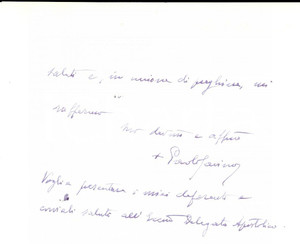 saluti e, in unione di preghiere, mi
raffermo
Suo devmo e affmo
+ Paolo
Voglia presentare i miei deferenti e
cordiali saluti all' Delegato Apostolico.